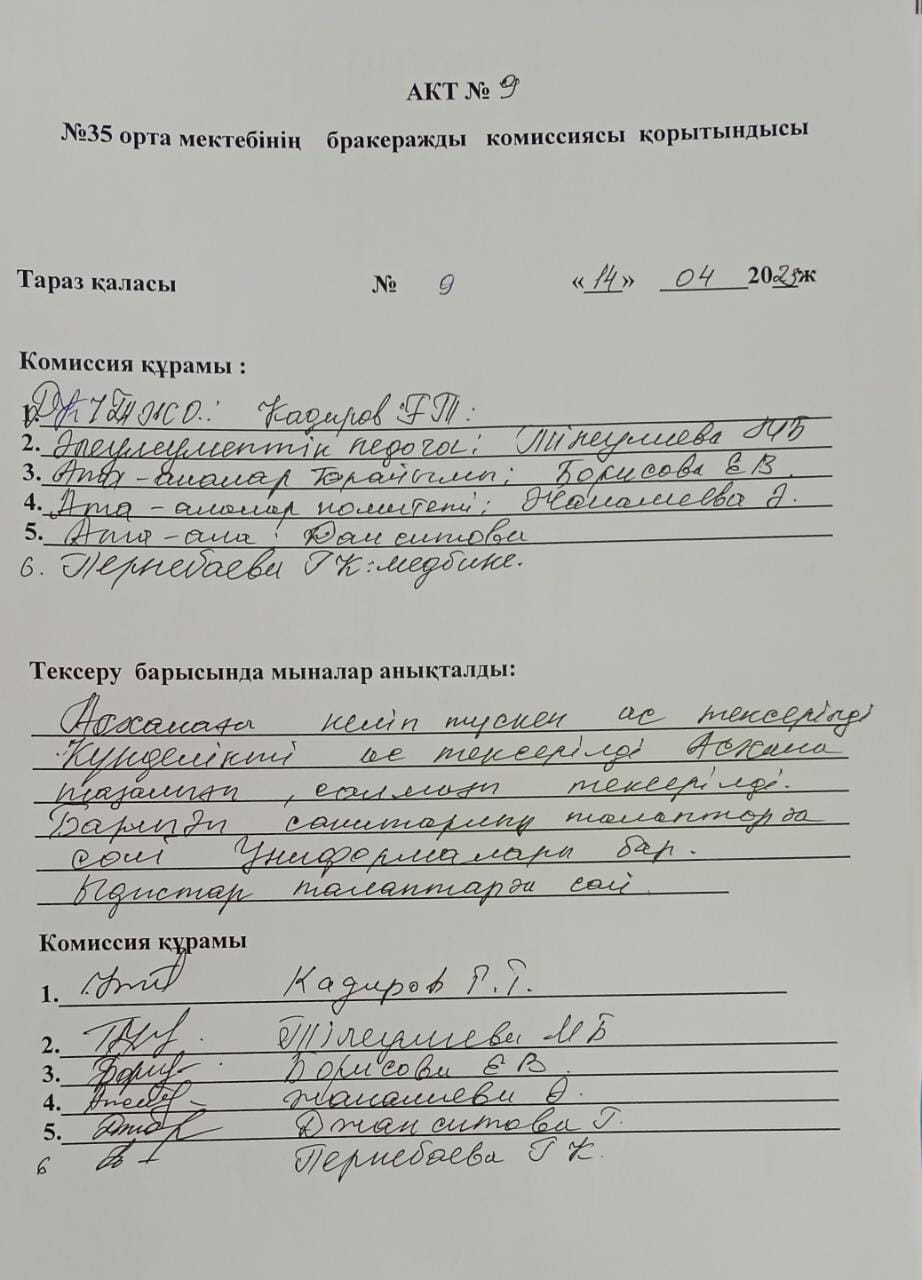 АКТ № 9
№35 орта мектебінің бракеражды комиссиясы қорытындысы
Тараз қаласы № 9 «14» 04 2025ж
Комиссия құрамы :
1. Кадиров Г.Т:
2. Әлеуметтік педогог: Тілеулиева М Б
3. Ата-аналар төрайымы: Борисова Е В
4. Ата-аналар комитеті: Жаналиева Ә.
5. Ата-ана: Джанситова
6. Пернебаева Г К: медбике.
Тексеру барысында мыналар анықталды:
Асханаға келіп түскен ас тексерілді
Күнделікті ас тексерілді Асхана
тазалығы , салмағы тексерілді.
Барлығы санитарлық талаптарға
сәй Униформалары бар.
Ыдыстар талаптарға сай
Комиссия құрамы
1. Кадиров Г.Т.
2. Тілеулиева М Б
3. Борисова Е В
4. Жаналиева Ә.
5. Джанситова Г.
6 Пернебаева Г К.